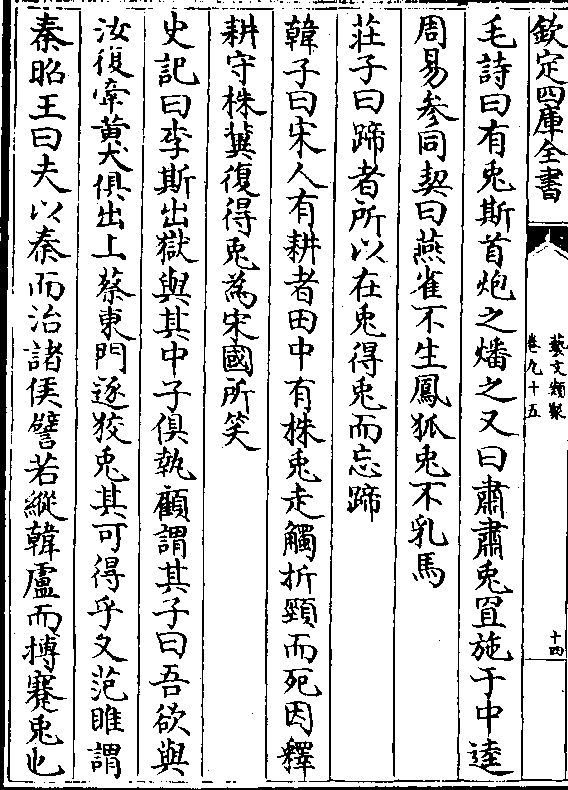 欽定四庫全書
藝文類聚
卷九十五
十四
毛詩曰有兎斯首炮之燔之又曰肅肅兎罝施于中逵
周易參同契曰燕雀不生鳳狐兎不乳馬
莊子曰蹄者所以在兎得兎而忘蹄
韓子曰宋人有耕者田中有株兎走觸折頸而死因釋
耕守株冀復得兎為宋國所笑
史記曰李斯出獄與其中子俱執顧謂其子曰吾欲與
汝復牽黃犬俱出上蔡東門逐狡兎其可得乎又范雎謂
秦昭王曰夫以秦而治諸侯譬若縱韓盧而搏蹇兎也